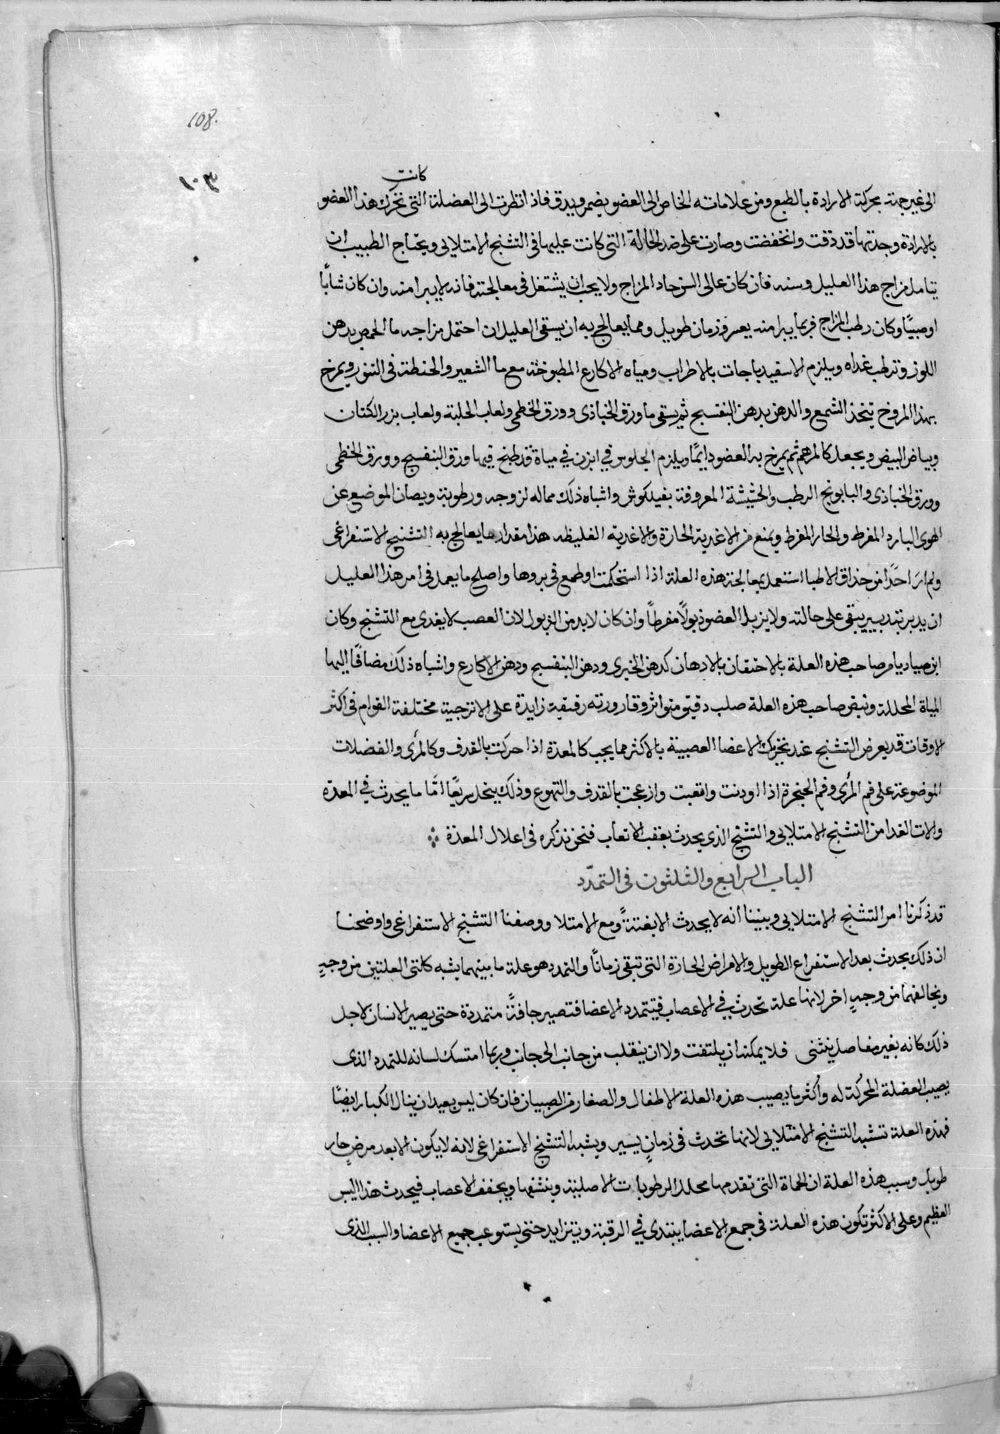 108.
١٠٣
كانت
الى غير جهته بحركة الارادة بالطبع ومن علاماته الخاص الى العضو يضمر ويدق فاذا نظرت الى العضلة التى تحرك هذا العضو
بالارادة وجدتها قد دقت وانخفضت وصارت على ضد الحالة التى كانت عليها فى التشنج الامتلايى ويحتاج الطبيب ان
يتامل مزاج هذا العليل وسنه فان كان عالى السن حاد المزاج ولا يجب ان يشتغل فى معالجته فانه لا يبرا منه وان كان شابًا
اوصبيًا وكان رطب المزاج فربما يبرا منه بعسر وزمان طويل ومما يعالج به ان يسقى العليل ان احتمل مزاجه ما الحمص بدهن
اللوز وترطب غداه ويلزم الاسفيدباجات بالاطراب ومياه الاكارع المطبوخة مع ما الشعير والحنطة فى التنور ويمرخ
بهذا المروخ يتخذ الشمع والدهن بدهن البنفسج ثم يسقى ما ورق الخبازى وورق الخطمى ولعاب الحلبة ولعاب بزر الكتان
وبياض البيض ويجعل كالمرهم ثم يمرخ به العضو دايمًا ويلزم الجلوس فى ابزن فى مياة قد طبخ فيها ورق البنفسج وورق الخطمى
وورق الخبازى والبابونج الرطب والحشيشة المعروفة بفيلكوش واشباه ذلك مما له لزوجه ورطوبة ويصان الموضع عن
الهوى البارد المفرط والحار المفرط ويمنع من الاغدية الحارة والاغدية الغليظه هذا مقدار ما يعالج به التشنج الاستفراغى
ولم ار احدًا من حذاق الاطبا استعمد بمعالجة هذه العلة اذا استحكمت او طمع فى بروها واصلح ما يعمل فى امر هذا العليل
ان يدبر تدبير يبقى على حالته ولا يزبل العضو ذبولًا مفرطًا وان كان لا بد من الذبول لان العصب لا يغدى مع التشنج وكان
ابن صياد يامر صاحب هذه العلة بالاحتقان بالادهان كدهن الخيرى ودهن البنفسج ودهن الاكارع واشباه ذلك مضافًا اليها
المياة المحللة ونبض صاحب هذه العلة صلب دقيق متواثر وقارورته رقيقة زايدة على الاترجية مختلفة القوام فى اكثر
الاوقات قد يعرض التشنج عند تحريك الاعضا العصبية بالاكثر مما يجب كالمعدة اذا حركت بالقدف وكالمرى والفضلات
الموضوعة على فم المرى وفم الحنجرة اذا اوديت واتعبت وازعجت بالقدف والتهوع وذلك ينحل سريعًا امّا ما يحدث فى المعدة
والات الغدا من التشنج الامتلايى والتشنج الذى يحدث بعقب الاتعاب فنحن نذكره فى اعلال المعدة
الباب الرابع والثلثون فى التمدد
قد ذكرنا امر التشنج الامتلايى وبيننا انه لا يحدث الا بغتةً ومع الامتلا ووصفنا التشنج الاستفراغى واوضحنا
ان ذلك يحدث بعد الاستفراغ الطويل والامراض الحارة التى تبقى زمانًا والتمدد هو علة ما بينهما يشبه كلتى العلتين من وجهٍ
ويخالفهما من وجهٍ اخر لانها علة تحدث فى الاعصاب فيتمدد الاعضا فتصير جافةً متمددة حتى يصير الانسان لاجل
ذلك كانه بغير مفاصل ينثنى فلا يمكنه ان يلتفت ولا ان ينقلب من جانب الى جانب وربما امتسك لسانه للتمدد الذى
يصيب العضلة المحركة له واكثر ما يصيب هذه العلة الاطفال والصغار من الصبيان فان كان ليس بعيد ان ينال الكبار ايضًا
فهذه العلة تشبه التشنج الامتلايى لانها تحدث فى زمانٍ يسير ويشبه التشنج الاستفراغى لانه لا يكون الا بعد مرض حار
طويل وسبب هذه العلة ان الحماة التى تقدمها محلل الرطوبات الاصلية وينشفها ويجفف الاعصاب فيحدث هذا اليبس
العظيم وعلى الاكثر تكون هذه العلة فى جمع الاعضا يبتدى فى الرقبة ويتزايد حتى يستوعب جميع الاعضا والسبب الذى